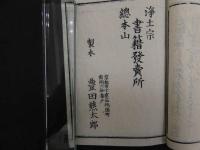 浄土宗
總本山
書籍發賣所
製本
豊田熊太郎